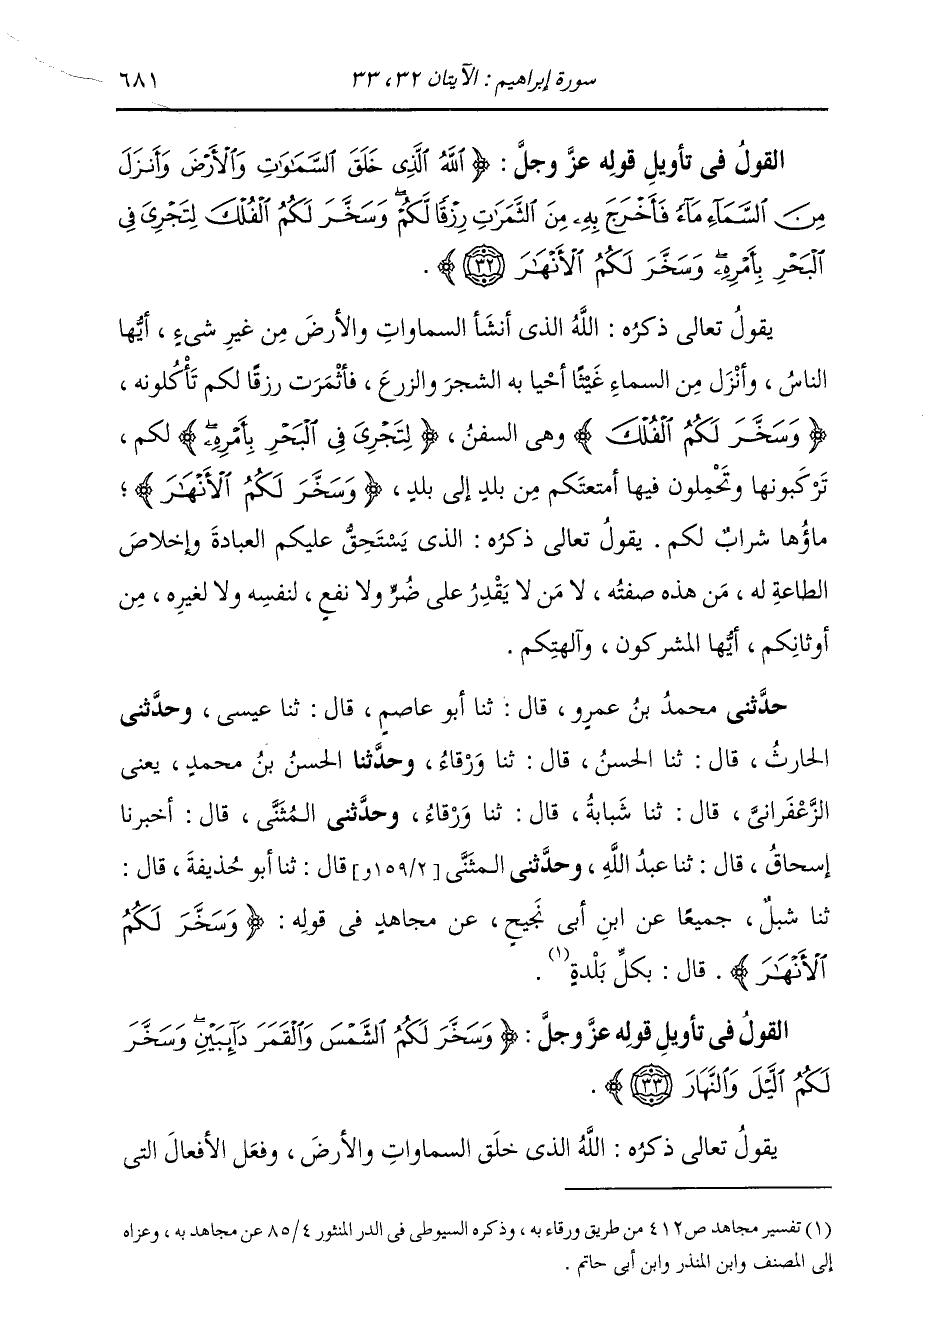 سورة إبراهيم : الآيتان ٣٢ ، ٣٣
٦٨١
القولُ فى تأويلِ قولِه عزَّ وجلَّ : ﴿ ٱللَّهُ ٱلَّذِى خَلَقَ ٱلسَّمَٰوَٰتِ وَٱلْأَرْضَ وَأَنزَلَ
مِنَ ٱلسَّمَآءِ مَآءً فَأَخْرَجَ بِهِۦ مِنَ ٱلثَّمَرَٰتِ رِزْقًا لَّكُمْۖ وَسَخَّرَ لَكُمُ ٱلْفُلْكَ لِتَجْرِىَ فِى
ٱلْبَحْرِ بِأَمْرِهِۦۖ وَسَخَّرَ لَكُمُ ٱلْأَنْهَٰرَ ٣٢ ﴾ .
يقولُ تعالى ذكرُه : اللَّهُ الذى أنشَأ السماواتِ والأرضَ مِن غيرِ شىءٍ ، أيُّها
الناسُ ، وأنْزَل مِن السماءِ غَيْثًا أحْيا به الشجرَ والزرعَ ، فأثْمَرَت رزقًا لكم تَأْكُلونه ،
﴿ وَسَخَّرَ لَكُمُ ٱلْفُلْكَ ﴾ وهى السفنُ ، ﴿ لِتَجْرِىَ فِى ٱلْبَحْرِ بِأَمْرِهِۦۖ ﴾ لكم ،
تَرْكَبونها وتَحْمِلون فيها أمتعتَكم مِن بلدٍ إلى بلدٍ ، ﴿ وَسَخَّرَ لَكُمُ ٱلْأَنْهَٰرَ ﴾ ؛
ماؤُها شرابٌ لكم . يقولُ تعالى ذكرُه : الذى يَسْتَحِقُّ عليكم العبادةَ وإخلاصَ
الطاعةِ له ، مَن هذه صفتُه ، لا مَن لا يَقْدِرُ على ضُرٍّ ولا نفعٍ ، لنفسِه ولا لغيرِه ، مِن
أوثانِكم ، أيُّها المشركون ، وآلهتِكم .
حدَّثنى محمدُ بنُ عمرٍو ، قال : ثنا أبو عاصمٍ ، قال : ثنا عيسى ، وحدَّثنى
الحارثُ ، قال : ثنا الحسنُ ، قال : ثنا وَرْقاءُ ، وحدَّثنا الحسنُ بنُ محمدٍ ، يعنى
الزَّعْفَرانىَّ ، قال : ثنا شَبابةُ ، قال : ثنا وَرْقاءُ ، وحدَّثنى المُثَنَّى ، قال : أخبرنا
إسحاقُ ، قال : ثنا عبدُ اللَّهِ ، وحدَّثنى المثَنَّى [ ١٥٩/٢و ] قال : ثنا أبو حُذيفةَ ، قال :
ثنا شبلٌ ، جميعًا عن ابنِ أبى نَجيحٍ ، عن مجاهدٍ فى قولِه : ﴿ وَسَخَّرَ لَكُمُ
ٱلْأَنْهَٰرَ ﴾ . قال : بكلِّ بَلْدةٍ (١) .
القولُ فى تأويلِ قولِه عزَّ وجلَّ : ﴿ وَسَخَّرَ لَكُمُ ٱلشَّمْسَ وَٱلْقَمَرَ دَآئِبَيْنِۖ وَسَخَّرَ
لَكُمُ ٱلَّيْلَ وَٱلنَّهَارَ ٣٣ ﴾ .
يقولُ تعالى ذكرُه : اللَّهُ الذى خلَق السماواتِ والأرضَ ، وفعَل الأفعالَ التى
(١) تفسير مجاهد ص ٤١٢ من طريق ورقاء به ، وذكره السيوطى فى الدر المنثور ٨٥/٤ عن مجاهد به ، وعزاه
إلى المصنف وابن المنذر وابن أبى حاتم .